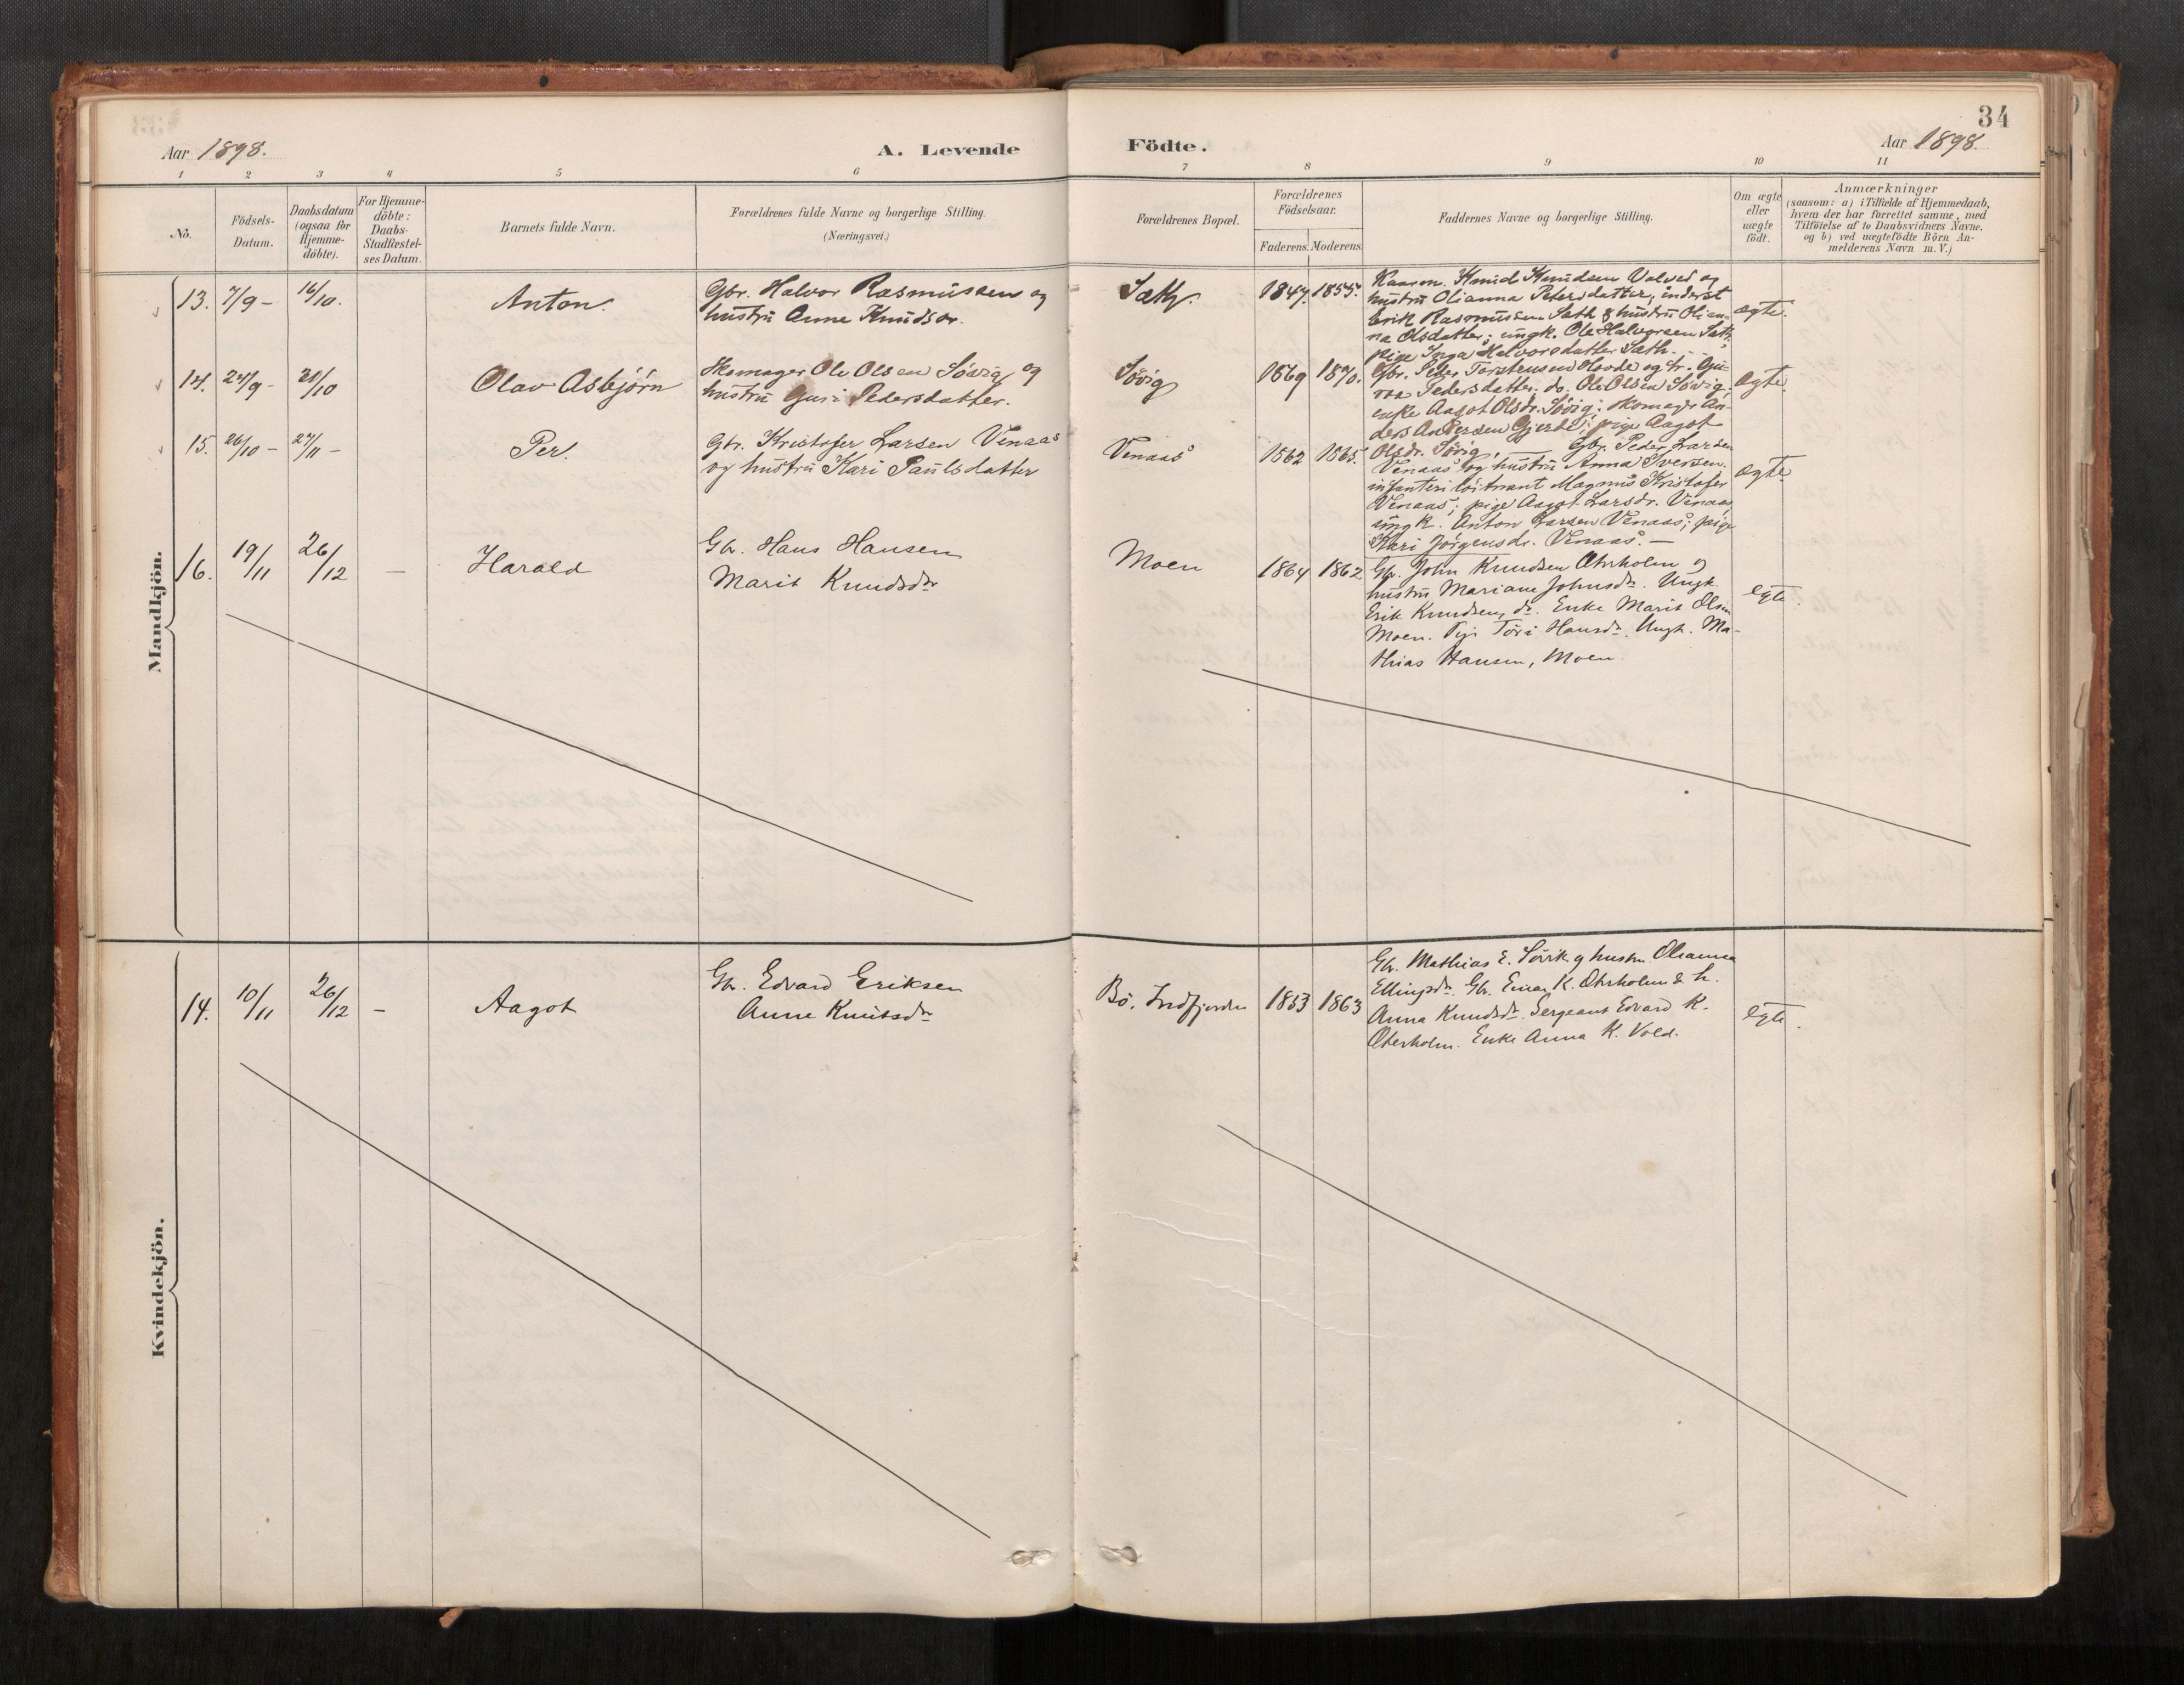 34
Aar 1898.
A. Levende Födte.
Aar 1898.
1 2 3 4 5 6 7 8 9 10 11
No.
Födsels-
Datum.
Daabsdatum
(ogsaa for
Hjemme-
döbte).
For Hjemme-
döbte:
Daabs-
Stadfæstel-
ses Datum.
Barnets fulde Navn.
Forældrenes fulde Navne og borgerlige Stilling.
(Næringsvei.)
Forældrenes Bopæl.
Forældrenes
Födselsaar.
Faderens. Moderens.
Faddernes Navne og borgerlige Stilling.
Om ægte
eller
uægte
födt.
Anmærkninger
(saasom: a) i Tilfælde af Hjemmedaab,
hvem der har forrettet samme, med
Tilföielse af to Daabsvidners Navne,
og b) ved uægtefödte Börn An-
melderens Navn m. V.)
Mandkjön.
13. 7/9 - 16/10. Anton.
Gbr. Halvor Rasmussen og
hustru Anne Knudsdr.
Sæth. 1847. 1855.
Kaarm. Knud Knudsen Valved og
hustru Olianna Petersdatter, inderst
Erik Rasmussen Sæth & hustru Olian-
na Olsdatter; ungk. Ole Halvorsen Sæth
pige Inga Halvorsdatter Sæth.
ægte.
14. 24/9 - 20/10 Olav Asbjørn
Skomager Ole Olsen Søvig og
hustru Guri Pedersdatter.
Søvig 1869 1870.
Gbr. Peder Torstensen og hr. Gu-
Pedersdatter; do. Ole Olsen Søvig;
enke Aagot Olsdr. Søvig; skomagr An-
ders Andersen Gjerde; pige Aagot
Olsdr. Søvig.
ægte.
15. 26/10 - 27/11 - Per.
Gbr. Kristofer Larsen Venaas
og hustru Kari Paulsdatter
Venaas 1862 1865.
Gbr. Peder Larsen
Venaas og hustru Anna Iversen.
infanteri løitnant Magnus Kristofer
Venaas; pige Aagot Larsdr. Venaas,
ungk. Anton Larsen Venaas; pige
Kari Jørgensdr. Venaas. —
ægte.
16. 19/11 26/12 — Harald
Gbr. Hans Hansen
Marit Knudsdr
Moen 1864 1862
Gbr. John Knudsen Oterholm og
hustru Mariane Johnsdr. Ungk.
Erik Knudsen, do. Enke Marit Olsen
Moen. Pige Töri Hansdr. Ungk. Ma-
thias Hansen, Moen.
egte.
Kvindekjön.
14. 10/11 26/12 — Aagot
Gbr. Edvard Eriksen
Anne Knutsdr
Bö. Indfjorden 1853 1863
Gbr. Mathias E. Sövik og hustru Olianna
Ellingsdr. Gbr. Einar K. Oterholm & h.
Anna Knudsdr. Sergeant Edvard K.
Oterholm. Enke Anna K. Vold.
egte.